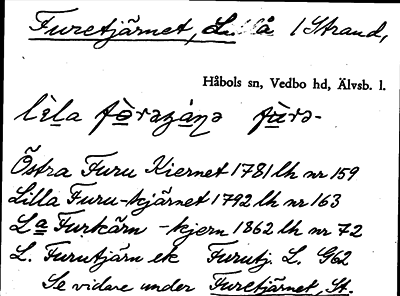 Furetjärnet, Lilla /Strand,
Håbols sn, Vedbo hd, Älvsb. l.
Östra Furu Kiernet 1781 lh nr 159
Lilla Furu-kjärnet 1792 lh nr 163
La Furkärn -kjern 1862 lh nr 72
L. Furutjärn ek Furutj. L. G62
Se vidare under Furetjärnet, St.